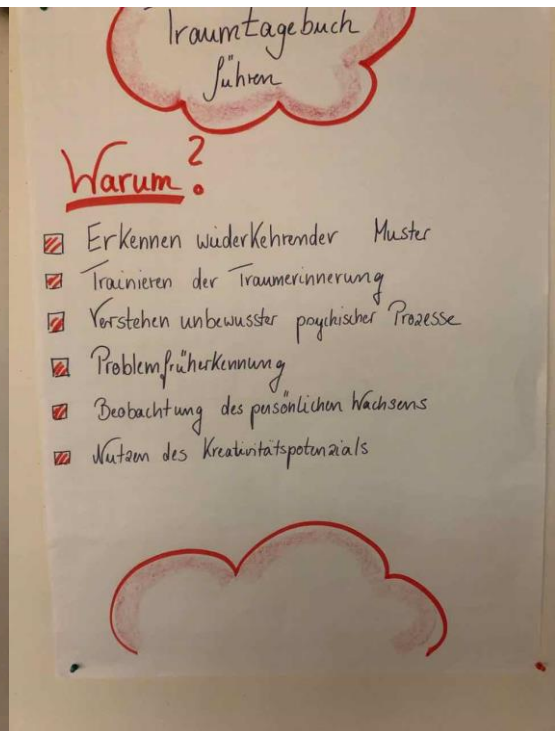 Traumtagebuch
führen
Warum?
Erkennen wiederkehrender Muster
Trainieren der Traumerinnerung
Verstehen unbewusster psychischer Prozesse
Problemfrüherkennung
Beobachtung des persönlichen Wachsens
Nutzen des Kreativitätspotenzials